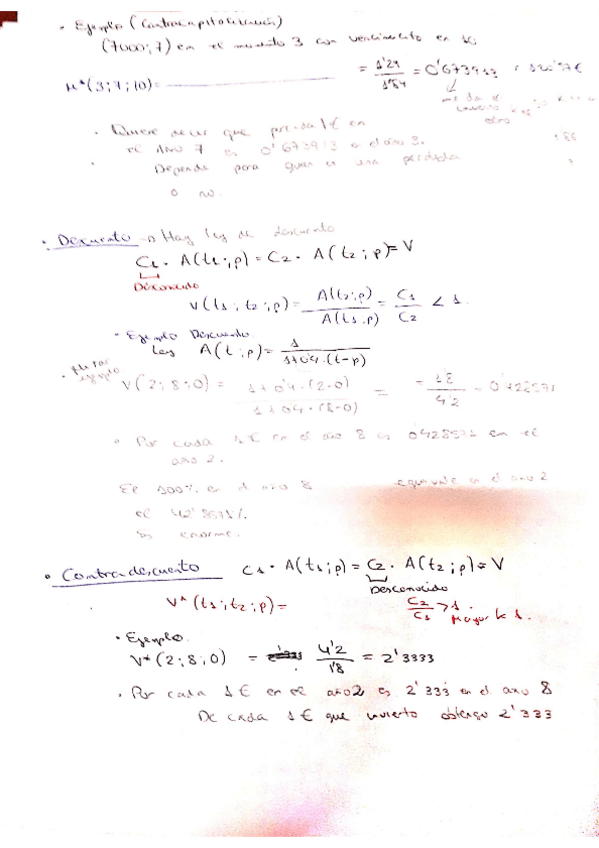 · Ejemplo (Contracapitalización)
(7000; 7) en el momento 3 con vencimiento en 10
= 1'29 / 1'84 = 0'673913
μ*(3; 7; 10) =
· Quiere decir que
el año 7 es 0'673913 el año 3.
Depende para quien es una perdida
o no.
· Descuento → Hay ley de descuento
C1 · A(t1; p) = C2 · A(t2; p) = V
Desconocido
V(t1; t2; p) = A(t2; p) / A(t1; p) = C1 / C2 < 1.
· Ejemplo Descuento.
Ley A(t; p) = 1 / 1+0'4·(t-p)
ejemplo
V(2; 8; 0) = 1+0'4·(2-0) / 1+0'4·(8-0) = 1'8 / 4'2 = 0'428571
· Por cada 1€ en el año 8 es 0'428571 en el
año 2.
El 100% en el año 8 equivale en el año 2
el 42'8571%.
enorme.
· Contradescuento C1 · A(t1; p) = C2 · A(t2; p) = V
Desconocido
V*(t1; t2; p) = C2 / C1 > 1. Mayor k 1.
· Ejemplo.
V*(2; 8; 0) = 4'2 / 1'8 = 2'3333
· Por cada 1€ en el año 2 es 2'333 en el año 8
De cada 1€ que invierto obtengo 2'333